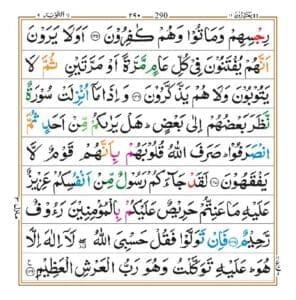 ٢٩٠ 290
رِجْسِهِمْ وَمَاتُوْا وَهُمْ كٰفِرُوْنَ ۝ اَوَلَا يَرَوْنَ
اَنَّهُمْ يُفْتَنُوْنَ فِيْ كُلِّ عَامٍ مَّرَّةً اَوْ مَرَّتَيْنِ ثُمَّ لَا
يَتُوْبُوْنَ وَلَا هُمْ يَذَّكَّرُوْنَ ۝ وَاِذَا مَاۤ اُنْزِلَتْ سُوْرَةٌ
نَّظَرَ بَعْضُهُمْ اِلٰى بَعْضٍ ؕ هَلْ يَرٰىكُمْ مِّنْ اَحَدٍ ثُمَّ
انْصَرَفُوْا ؕ صَرَفَ اللّٰهُ قُلُوْبَهُمْ بِاَنَّهُمْ قَوْمٌ لَّا
يَفْقَهُوْنَ ۝ لَقَدْ جَآءَكُمْ رَسُوْلٌ مِّنْ اَنْفُسِكُمْ عَزِيْزٌ
عَلَيْهِ مَا عَنِتُّمْ حَرِيْصٌ عَلَيْكُمْ بِالْمُؤْمِنِيْنَ رَءُوْفٌ
رَّحِيْمٌ ۝ فَاِنْ تَوَلَّوْا فَقُلْ حَسْبِيَ اللّٰهُ ۖ لَاۤ اِلٰهَ اِلَّا
هُوَ ؕ عَلَيْهِ تَوَكَّلْتُ وَهُوَ رَبُّ الْعَرْشِ الْعَظِيْمِ ۝